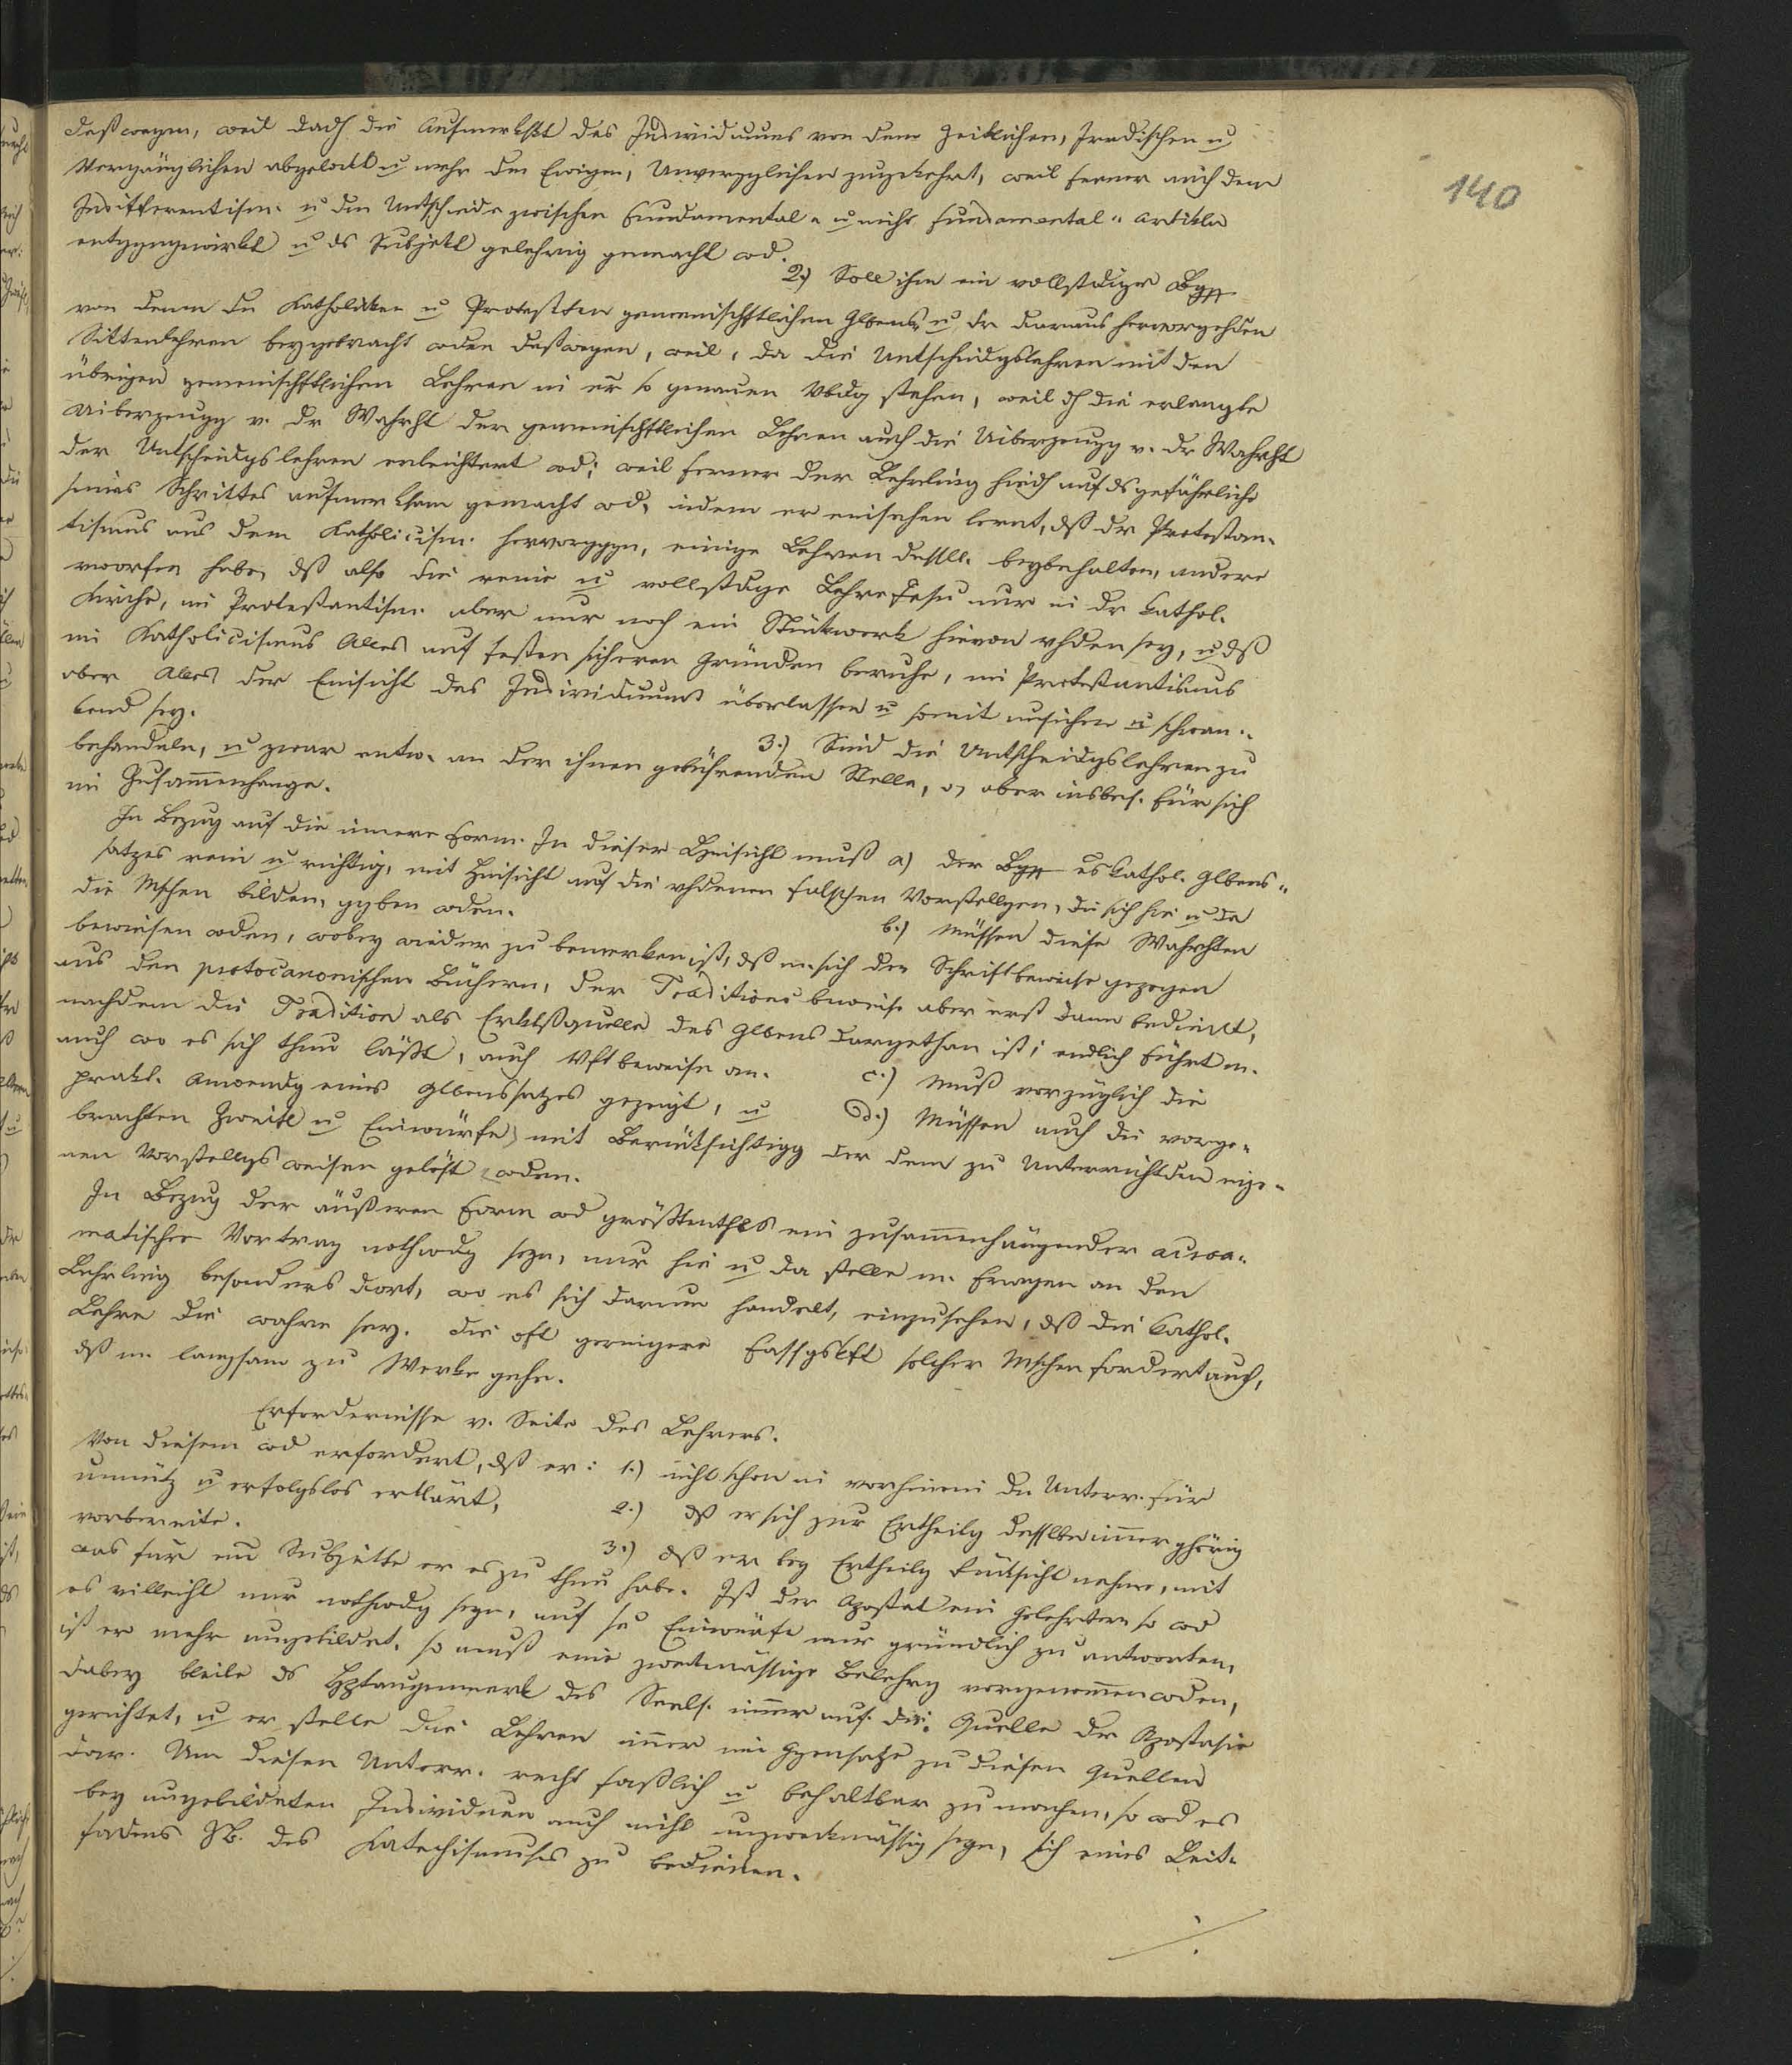 140
deßwegen, weil dadh die Aufmerkskt des Individuums von dem Zeitlichen, Irrdischen u
Vergänglichen abgelenkt u mehr dem Ewigen, Unvergglichen zugekehrt, weil ferner auch dem
Indifferentism. u den Untschiede zwischen Fundamental- u nicht fundamental-Artikeln
entggngewirkt u ds Subjekt gelehrig gemacht wd.
2.) Soll ihm ein vollstdiger Bgrff
von denen den Katholiken u Protestten gemeinschftlichen Glbens- u den daraus hervorgehden
Sittenlehren beygebracht wden deßwegen, weil, da die Untscheidgslehren mit den
übrigen gemeinschftlichen Lehren in er so genauen Vbdg stehen, weil dh die erlangte
Uiberzeugg v. dr Wahrht der gemeinschftlichen Lehren auch die Uiberzeugg v. dr Wahrht
der Untscheidgslehren erleichtert wd; weil ferner der Lehrling hiedh auf ds gefährliche
seines Schrittes aufmerksam gemacht wd, indem er einsehen lernt, dß dr Protestan-
tismus aus dem Katholicism. hervorgggn, einige Lehren dessllb. beybehalten, andere
vworfen habe, dß also die reine u vollstdige Lehre Jesu nur in dr kathol.
Kirche, im Protestantism. aber nur noch ein Stückwerk hievon vhden sey, u dß
im Katholicismus Alles auf festen sicheren Gründen beruhe, im Protestantismus
aber Alles der Einsicht des Individuums überlassen u somit unsicher u schwan-
kend sey.
3.) Sind die Untscheidgslehren zu
behandeln, u zwar entw. an der ihnen gebührenden Stelle, o aber insbes. für sich
im Zusammenhange.
In Bezug auf die innere Form. In dieser Hinsicht muß a) der Bgrff es kathol. Glbens-
satzes rein u richtig, mit Hinsicht auf die vhdenen falschen Vorstellgen, die sich hie u da
die Mschen bilden, ggben wden.
b.) Müssen diese Wahrhten
bewiesen wden, wobey wieder zu bemerken ist, dß m. sich der Schriftbeweise gezogen
aus den protocanonischen Büchern, der Traditions beweise aber erst dann bedient,
nachdem die Tradition als Erktßquelle des Glbens dargethan ist; endlich führt m.
auch wo es sich thun läßt, auch Vftbeweise an.
c.) Muß vorzüglich die
prakt. Anwendg eines Glbenssatzes gezeigt, u
d.) Müssen auch die vorge-
brachten Zweifel u Einwürfe mit Berücksichtigg der dem zu Unterrichtden eige-
nen Vorstellgsweisen gelöst wden.
In Bezug der äußeren Form wd größtenthls ein zusammenhängender acroa-
matischer Vortrag nothwdg seyn, nur hie u da stelle m. Fragen an den
Lehrling besonders dort, wo es sich darum handelt, einzusehen, dß die kathol.
Lehre die wahre sey. Die oft geringere Fassgskft solcher Mschen fordert auch,
dß m. langsam zu Werke gehe.
Erfordernisse v. Seite des Lehrers.
Von diesem wd erfordert, dß er: 1.) nicht schon im vorhinein den Unterr. für
unnütz u erfolgslos erklärt,
2.) dß er sich zur Ertheilg desslben immer ghörig
vorbereite.
3.) dß er bey Ertheilg Rücksicht nehme, mit
was für em Subjekte er es zu thun habe. Ist der Apostat ein Gelehrter, so wd
es villeicht nur nothwdg seyn, auf se Einwürfe nur gründlich zu antworten,
ist er mehr ungebildet, so muß eine zweckmässige Belehrg vorgenommen wden,
dabey bleibe ds Hptaugenmerk des Seels. immer auf die Quelle der Apostasie
gerichtet, u er stelle die Lehren immer im Ggensatze zu diesen Quellen
dar. Um diesen Unterr. recht faßlich u behaltbar zu machen, so wd es
bey ungebildeten Individuen auch nicht unzweckmässig seyn, sich eines Leit-
fadens zB. des Katechismuses zu bedienen.